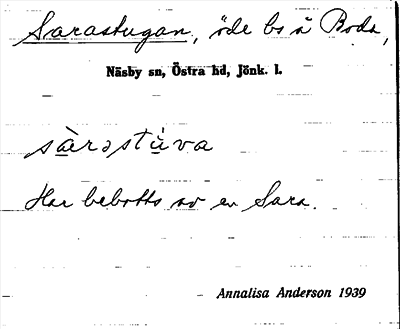 Sarastugan, öde bs å Boda,
Näsby sn, Östra hd, Jönk. l.
sàrəstùva
Har bebotts av en Sara.
Annalisa Anderson 1939